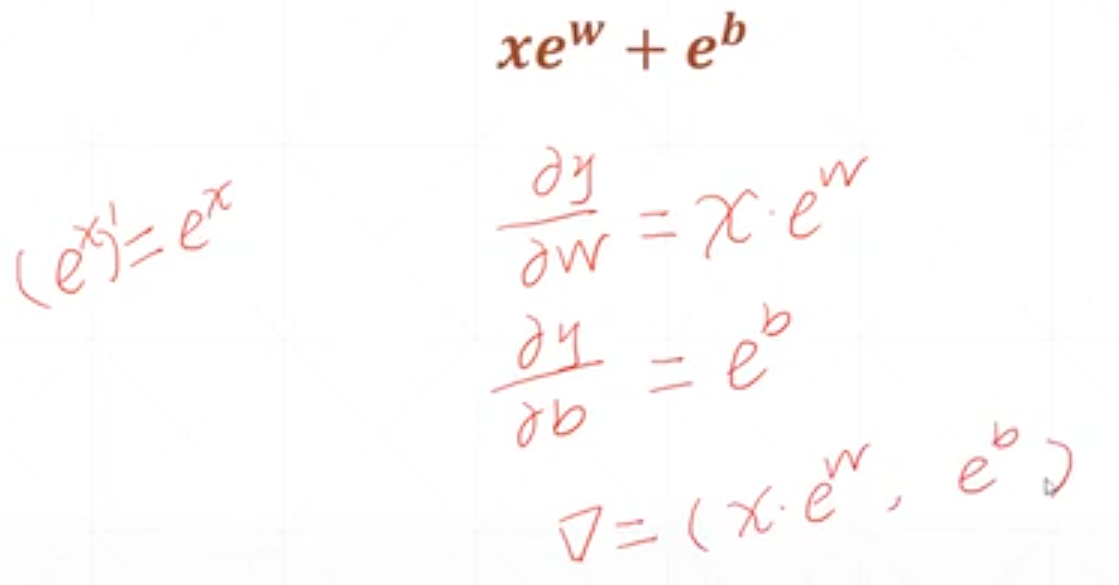 xe^w + e^b
(e^x)' = e^x
∂y/∂w = x·e^w
∂y/∂b = e^b
∇ = (x·e^w, e^b)